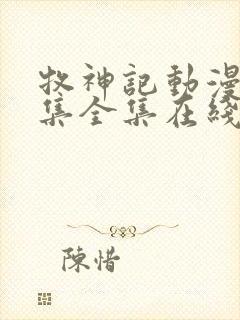 牧神記動漫
集全集在綫
陳惜